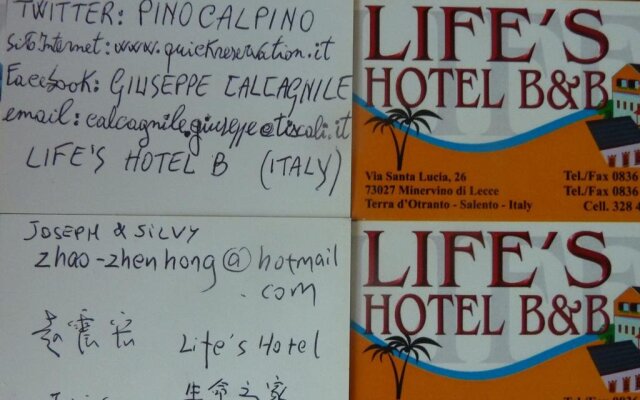 TWITTER: PINOCALPINO
sito Internet: www.quickreservation.it
Facebook: GIUSEPPE CALCAGNILE
email: calcagnile.giuseppe@tiscali.it
LIFE'S HOTEL B (ITALY)
LIFE'S
HOTEL B&B
Via Santa Lucia, 26
73027 Minervino di Lecce
Terra d'Otranto - Salento - Italy
Tel./Fax 0836
Tel./Fax 0836
Cell. 328 4
JOSEPH & SILVY
zhao-zhenhong@hotmail
.com
Life's Hotel
生命之家
LIFE'S
HOTEL B&B
Tel./Fax 0836